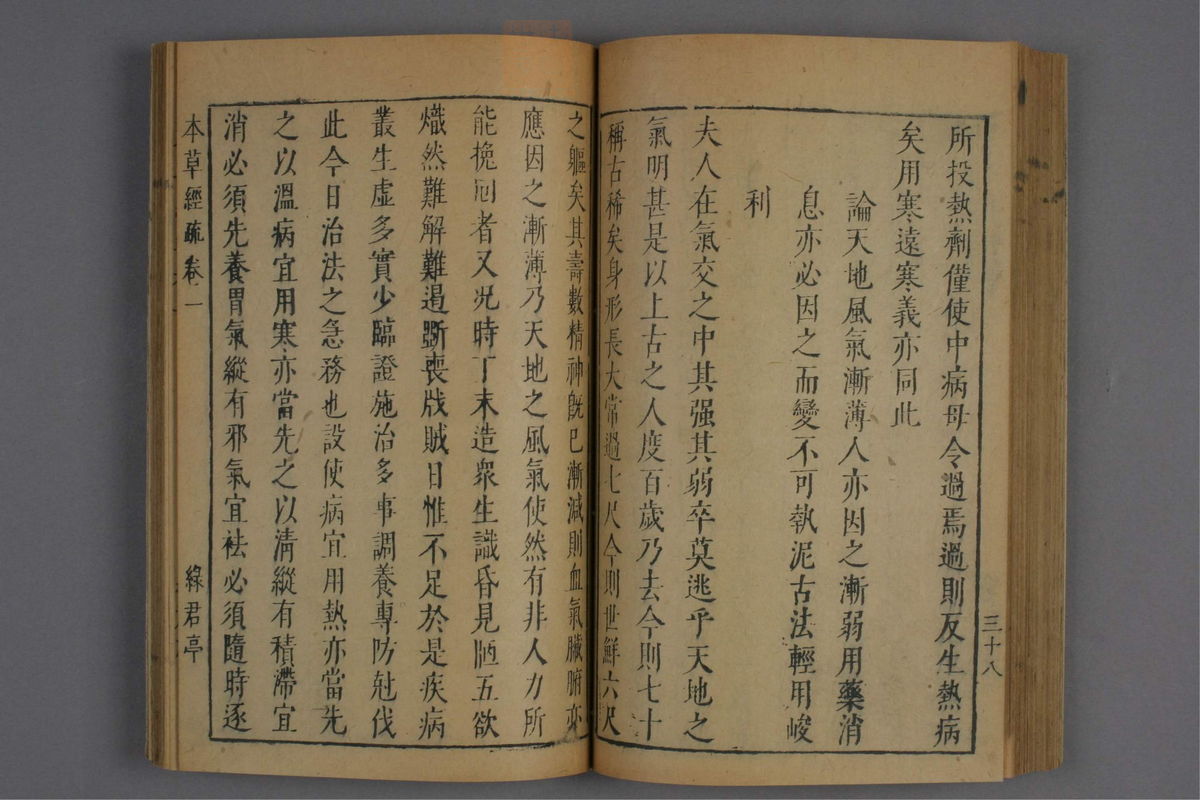 三十八
所投熱劑僅使中病毋令過焉過則反生熱病
矣用寒遠寒義亦同此
論天地風氣漸薄人亦因之漸弱用藥消
息亦必因之而變不可執泥古法輕用峻
利
夫人在氣交之中其强其弱卒莫逃乎天地之
氣明甚是以上古之人度百歲乃去今則七十
稱古稀矣身形長大常過七尺今則世鮮六尺
之軀矣其壽數精神旣已漸減則血氣臟腑亦
應因之漸薄乃天地之風氣使然有非人力所
能挽囘者又况時丁末造衆生識昏見陋五欲
熾然難解難遏斵喪戕賊日惟不足於是疾病
叢生虛多實少臨證施治多事調養專防尅伐
此今日治法之急務也設使病宜用熱亦當先
之以溫病宜用寒亦當先之以清縱有積滯宜
消必須先養胃氣縱有邪氣宜袪必須隨時逐
本草經疏 卷一
綠君亭